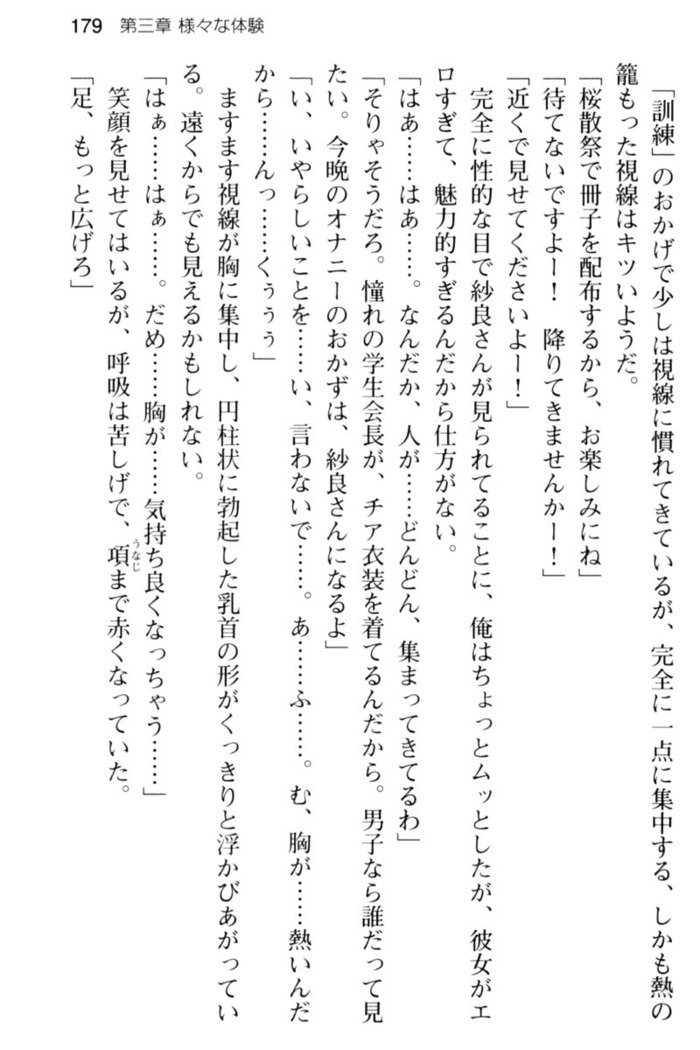 179 第三章 様々な体験
「訓練」のおかげで少しは視線に慣れてきているが、完全に一点に集中する、しかも熱の
籠もった視線はキツいようだ。
「桜散祭で冊子を配布するから、お楽しみにね」
「待てないですよー！　降りてきませんかー！」
「近くで見せてくださいよー！」
完全に性的な目で紗良さんが見られてることに、俺はちょっとムッとしたが、彼女がエ
ロすぎて、魅力的すぎるんだから仕方がない。
「はあ……はあ……。なんだか、人が……どんどん、集まってきてるわ」
「そりゃそうだろ。憧れの学生会長が、チア衣装を着てるんだから。男子なら誰だって見
たい。今晩のオナニーのおかずは、紗良さんになるよ」
「い、いやらしいことを……い、言わないで……。あ……ふ……。む、胸が……熱いんだ
から……んっ……くぅぅぅ」
ますます視線が胸に集中し、円柱状に勃起した乳首の形がくっきりと浮かびあがってい
る。遠くからでも見えるかもしれない。
「はぁ……はぁ……。だめ……胸が……気持ち良くなっちゃう……」
笑顔を見せてはいるが、呼吸は苦しげで、項うなじまで赤くなっていた。
「足、もっと広げろ」